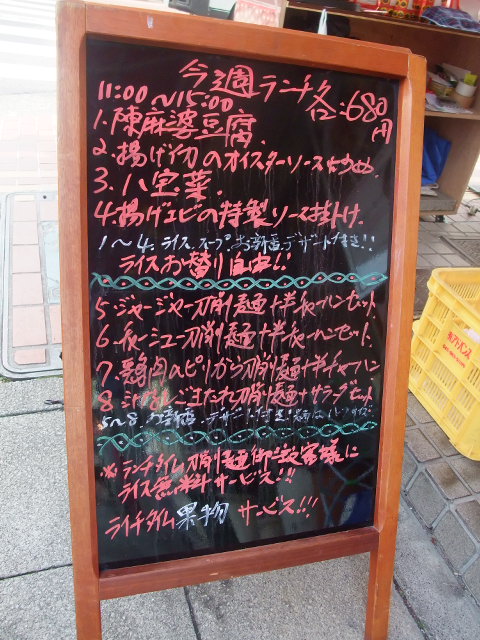 今週ランチ各:680円
11:00〜15:00
1.陳麻婆豆腐
2.揚げイカのオイスターソース炒め.
3.八宝菜.
4.揚げエビの特製ソース掛け.
1〜4.ライス.スープ.お新香.デザート付き!!
ライスお替り自由!!
5.ジャージャー刀削麺+半チャーハンセット
6.チャーシュー刀削麺+半チャーハンセット.
7.鶏肉のピリから刀削麺+半チャーハン
8.ごまたれ刀削麺+サラダセット
5〜8.お新香.デザート付き!
※ランチタイム刀削麺御注文客様に
ライス無料サービス!!!
ライチタイム果物サービス!!!